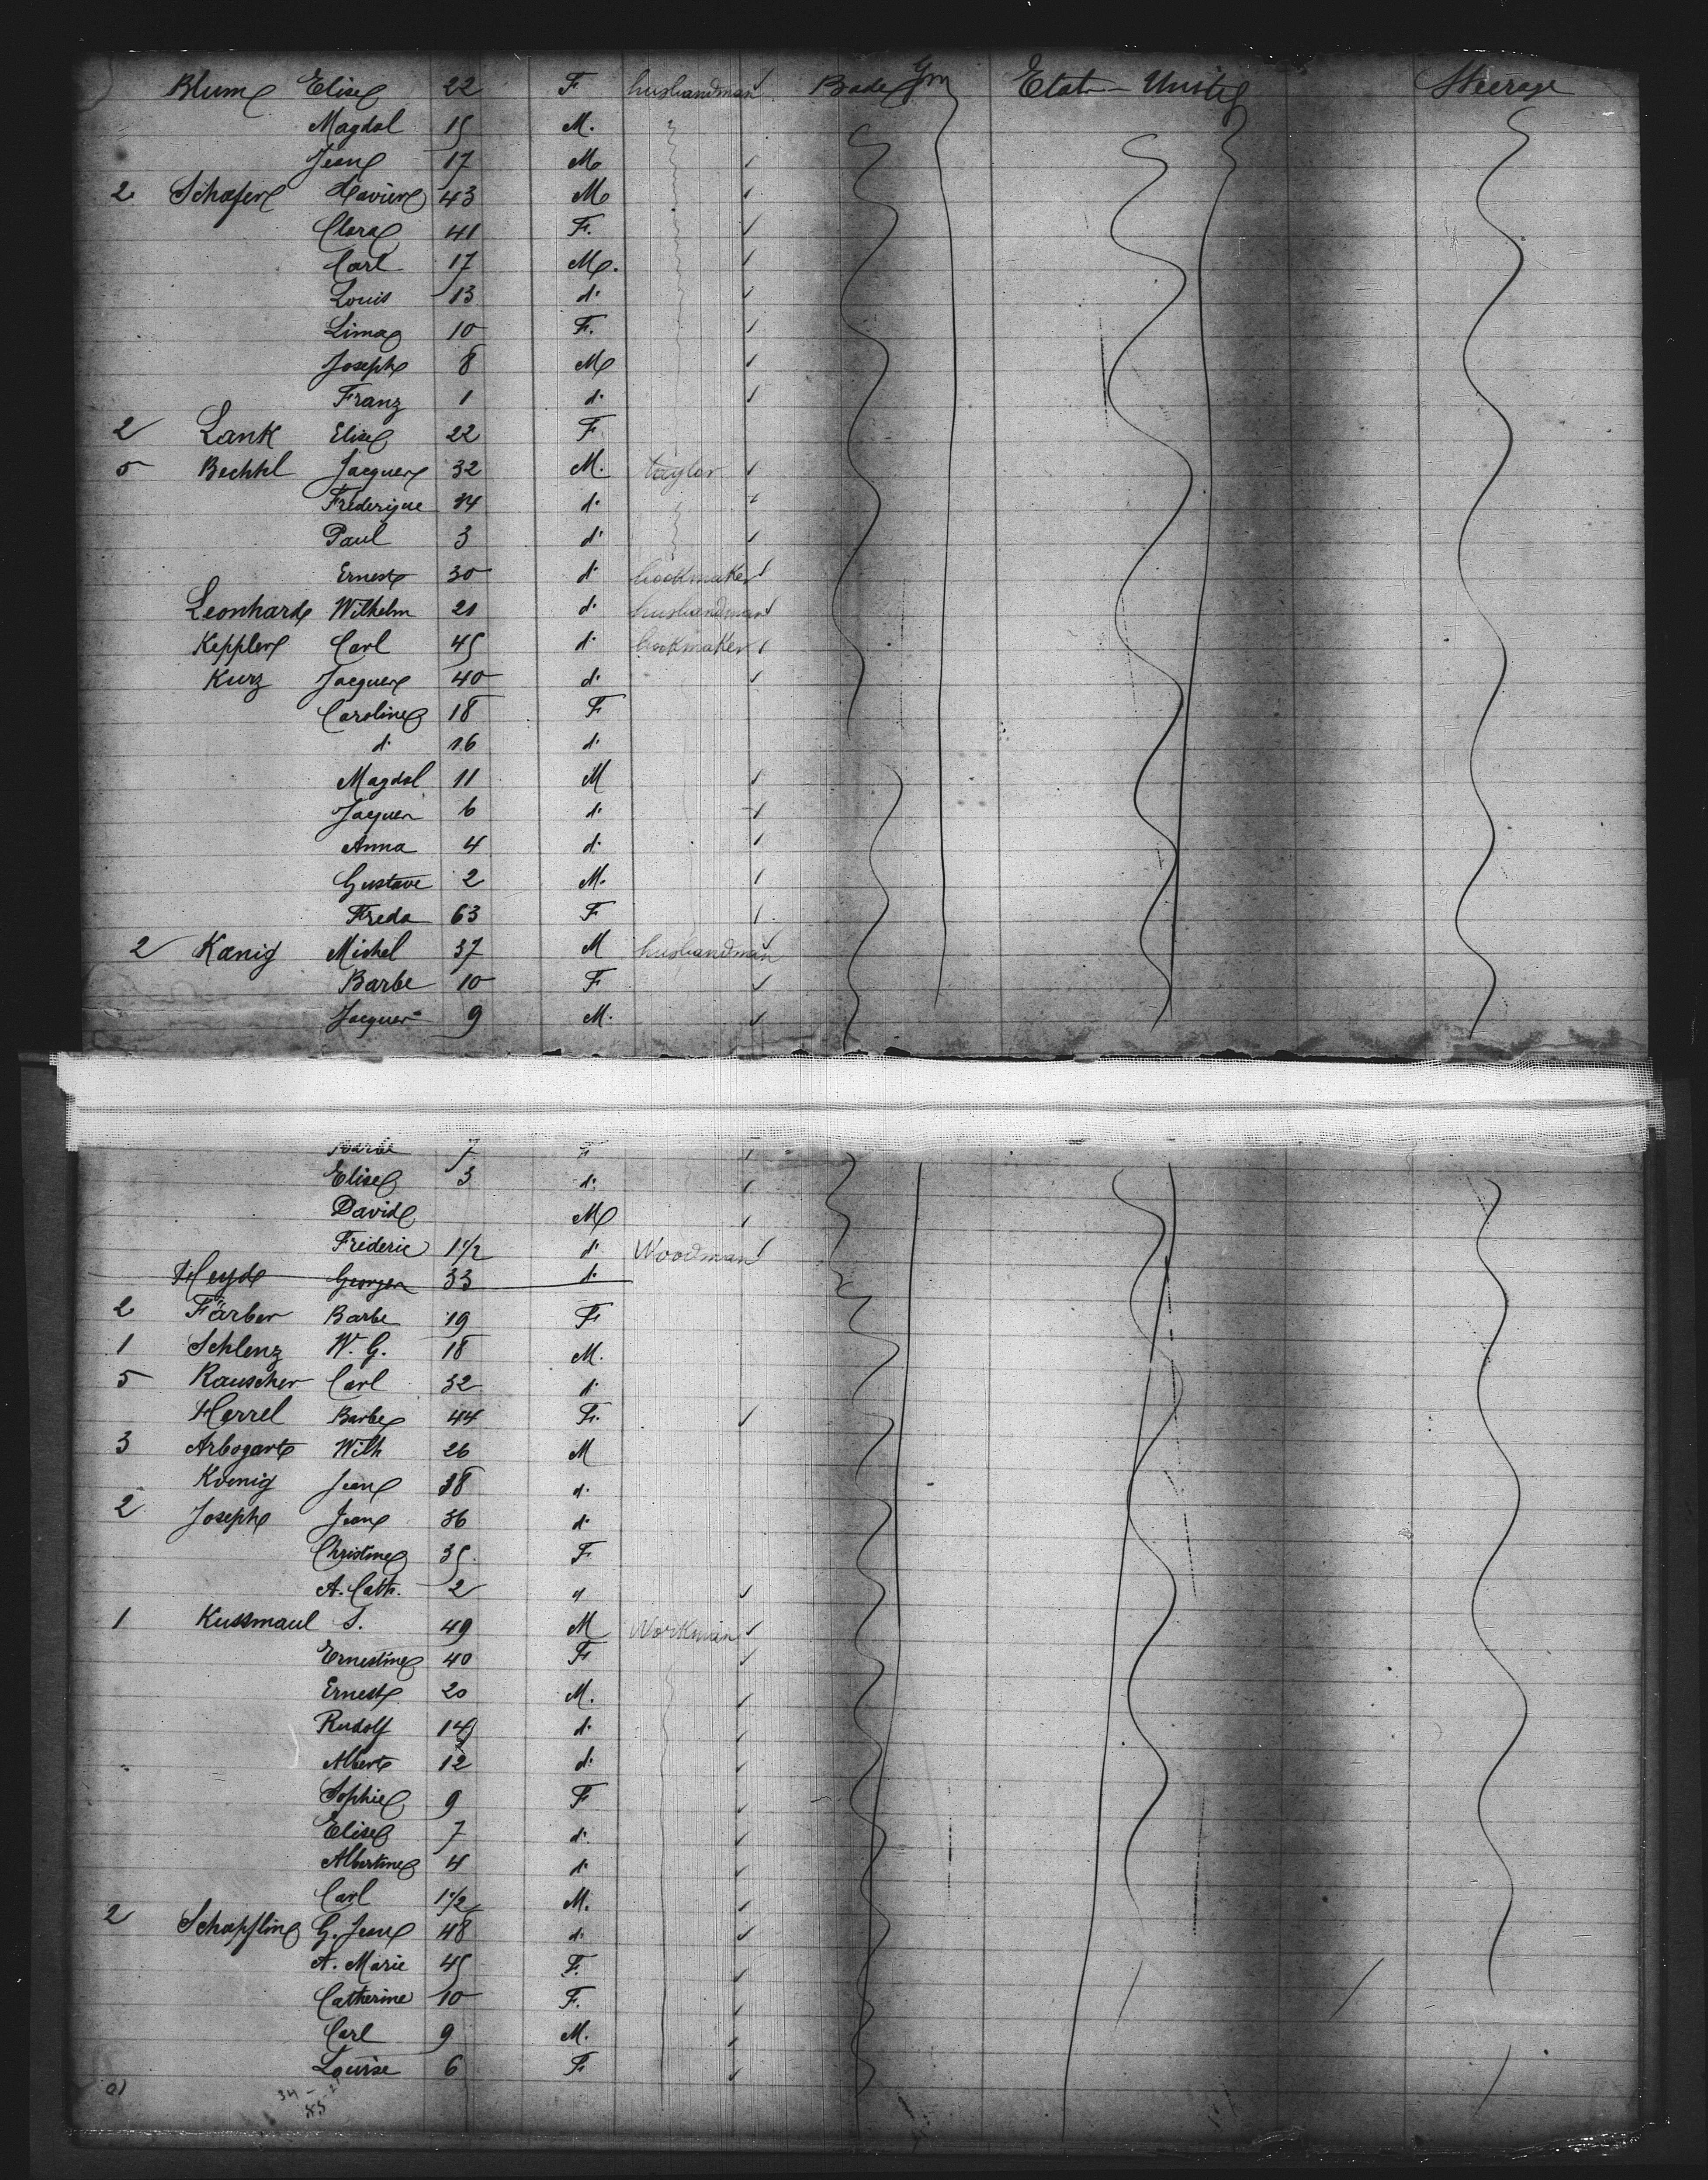 Blum Elise 22 F husbandman Bade Gm Etat-Unis Steerage
Magdal 15 M.
Jean 17 M
2 Schafer Xavier 43 M
Clara 41 F.
Carl 17 M.
Louis 13 d.
Lima 10 F.
Joseph 8 M
Franz 1 d.
2 Lank Elise 22 F
5 Bechtl Jacques 32 M. taylor
Fréderique 34 d.
Paul 3 d.
Ernest 30 d. bookmaker
Leonhard Wilhelm 21 d. husbandman
Keppler Carl 45 d. bookmaker
Kurz Jacques 40 d.
Caroline 18 F
d. 16 d.
Magdal 11 M
Jacques 6 d.
Anna 4 d.
Gustave 2 M.
Freda 63 F
2 Kœnig Michel 37 M husbandman
Barbe 10 F
Jacques 9 M.
Barbe 7 F
Elise 3 d.
David M
Frideric 1 1/2 d. Woodman
Heyd Georges 33 d.
2 Färber Barbe 19 F
1 Schlenz W. G. 18 M.
5 Rauscher Carl 32 d.
Herrel Barbe 44 F.
3 Arbogart Wilh 26 M
Kœnig Jean 38 d.
2 Joseph Jean 36 d.
Christine 35 F
A. Cath. 2 "
1 Kussmaul T. 49 M Workman
Ernestine 40 F
Ernest 20 M.
Rudolf 14 d.
Albert 12 d.
Sophie 9 F
Elise 7 d.
Albertine 4 d.
Carl 1 1/2 M.
2 Schopfling G. Jean 48 d.
A. Marie 45 F.
Catherine 10 F.
Carl 9 M.
Louise 6 F
34 -